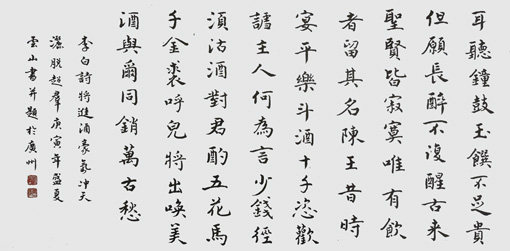 耳聽鐘鼓玉饌不足貴
但願長醉不復醒古來
聖賢皆寂寞唯有飲
者留其名陳王昔時
宴平樂斗酒十千恣歡
謔主人何為言少錢徑
須沽酒對君酌五花馬
千金裘呼兒將出喚美
酒與爾同銷萬古愁
李白詩將進酒豪氣冲天
灑脱超羣庚寅年盛夏
雲山書并題於廣州